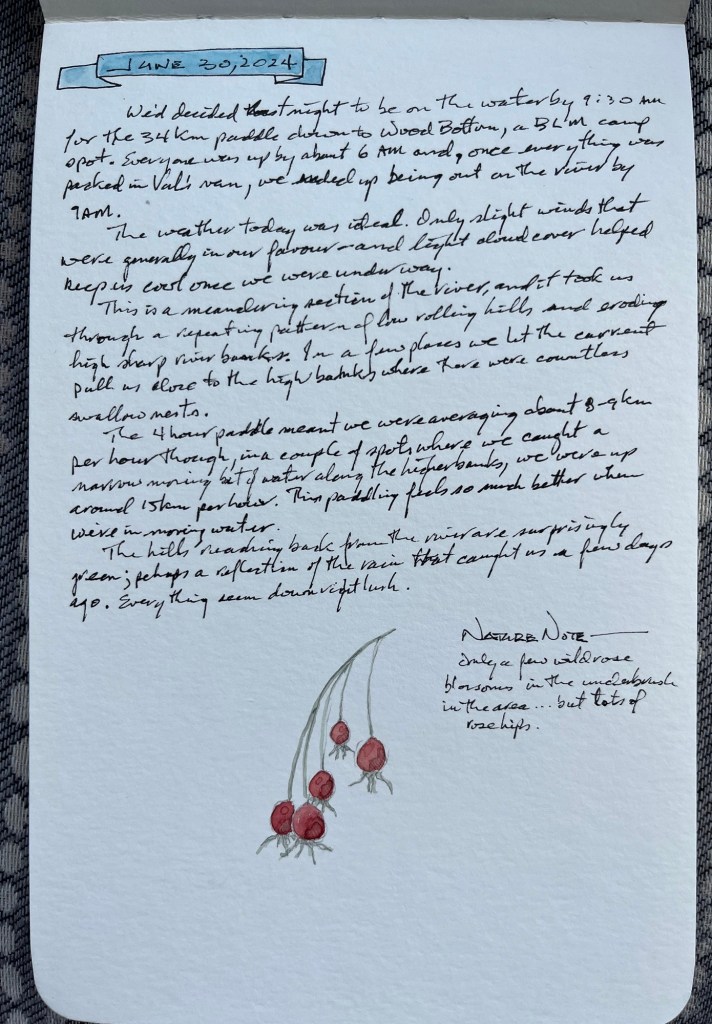 JUNE 30, 2024
We'd decided last night to be on the water by 9:30 AM
for the 34 km paddle down to Wood Bottom, a BLM camp
spot. Everyone was up by about 6 AM and, once everything was
packed in Val's van, we ended up being out on the river by
9 AM.
The weather today was ideal. Only slight winds that
were generally in our favour – and light cloud cover helped
keep us cool once we were under way.
This is a meandering section of the river, and it took us
through a repeating pattern of low rolling hills and eroding
high sharp river banks. In a few places we let the current
pull us close to the high banks where there were countless
swallow nests.
The 4 hour paddle meant we were averaging about 8-9 km
per hour though, in a couple of spots where we caught a
narrow moving bit of water along the higher banks, we were up
around 15 km per hour. This paddling feels so much better when
we're in moving water.
The hills reaching back from the river are surprisingly
green; perhaps a reflection of the rain that caught us a few days
ago. Everything seem downright lush.
NATURE NOTE —
Only a few wild rose
blossoms in the underbrush
in the area ... but lots of
rosehips.